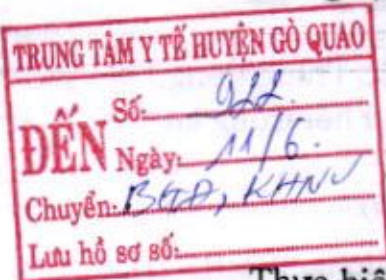 TRUNG TÂM Y TẾ HUYỆN GÒ QUAO
ĐẾN
Số: 922.
Ngày: 11/6.
Chuyển: BGĐ, KHNV
Lưu hồ sơ số: